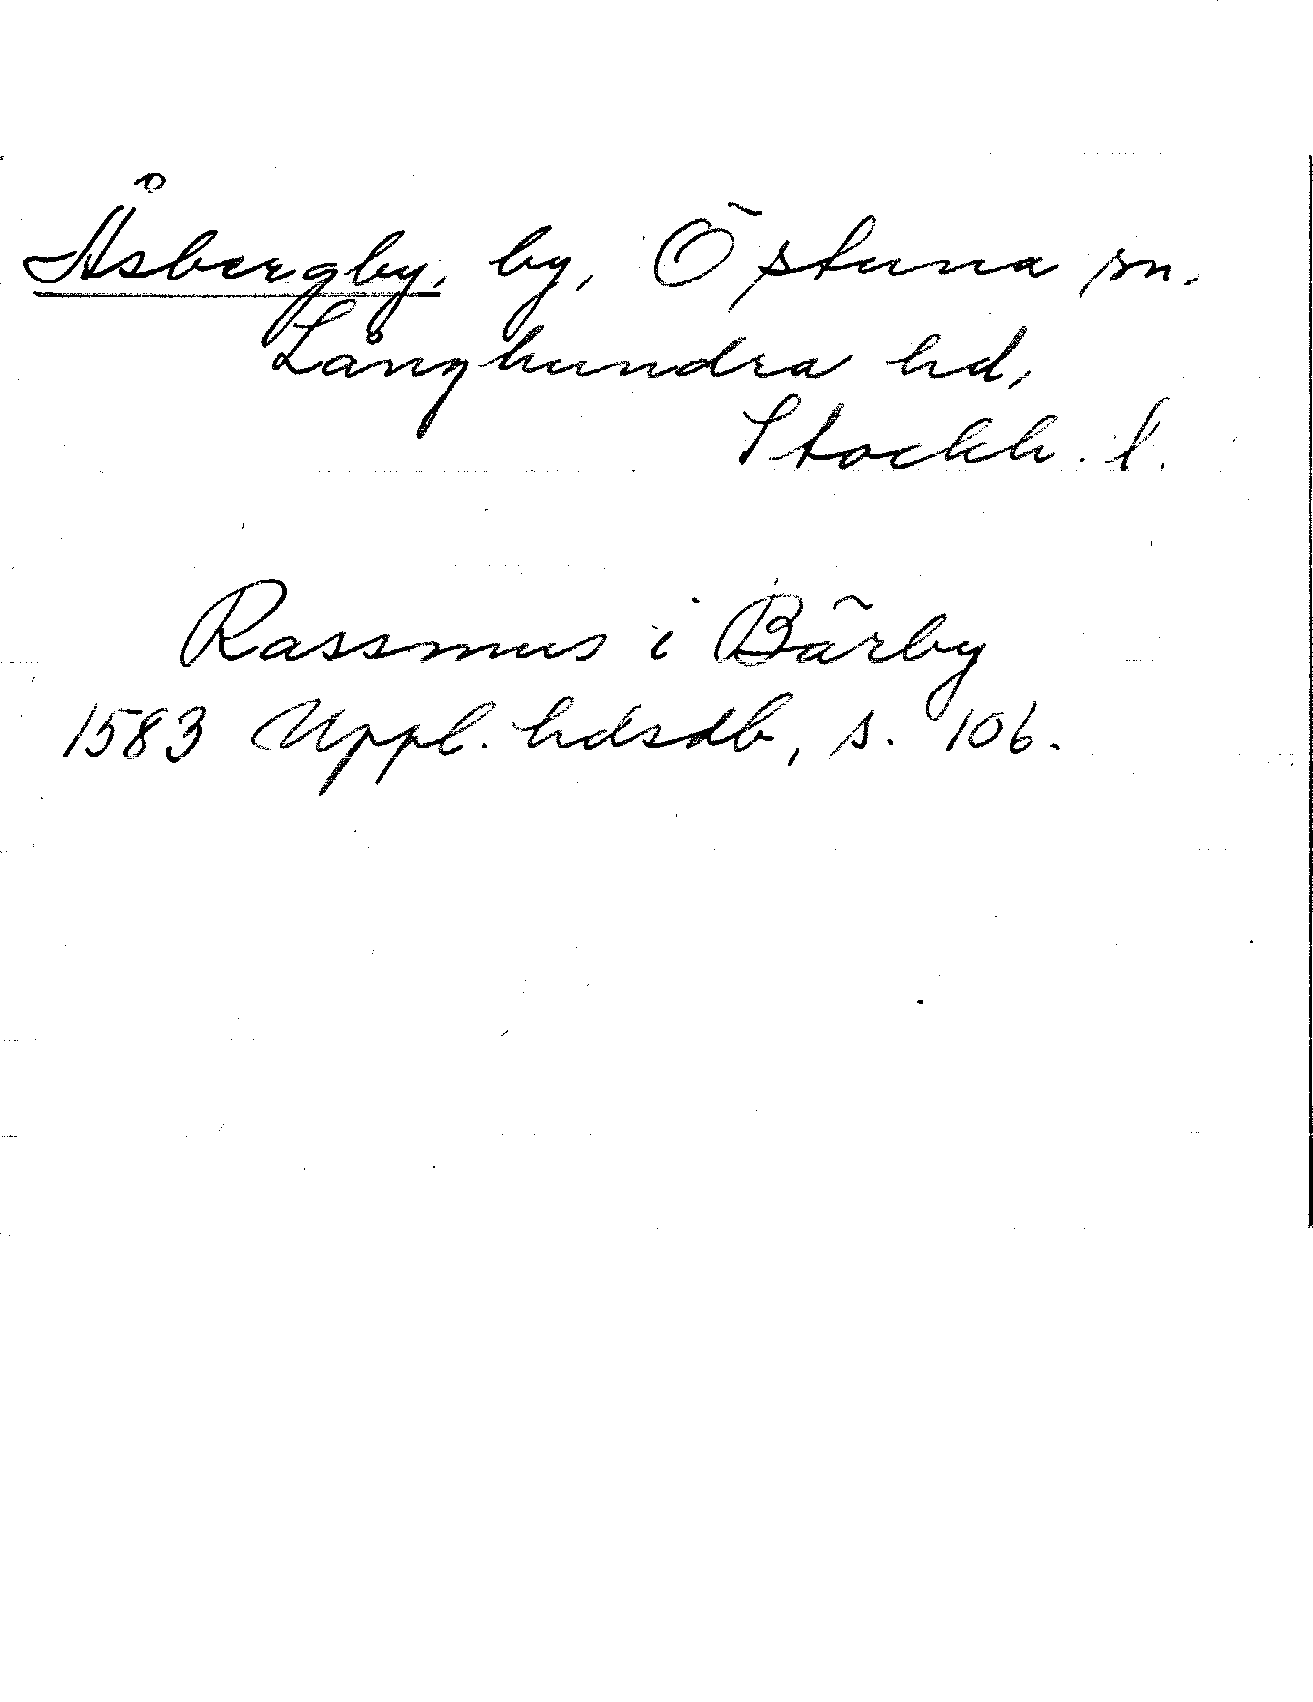 Åsbergby, by, Östuna sn.
Långhundra hd,
Stockh. l.
Rassmus i Bärby
1583 Uppl. hdsdb, s. 106.